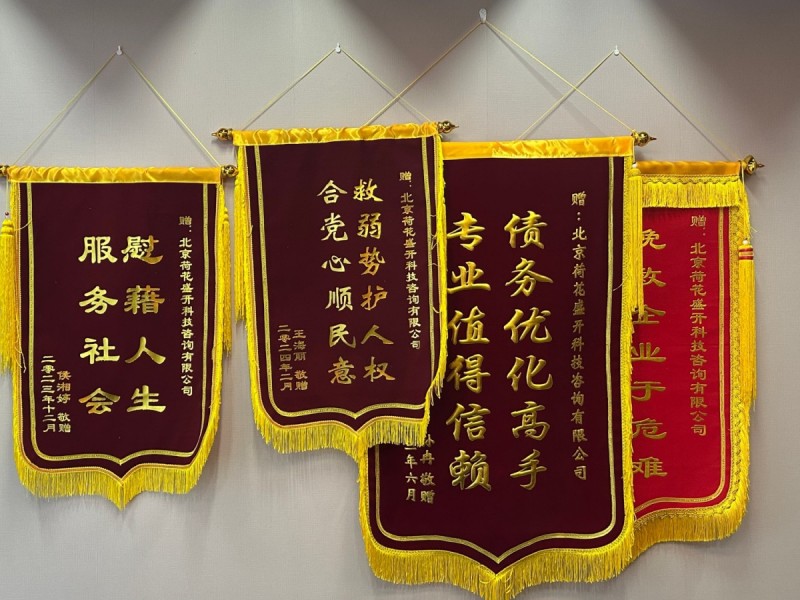 赠：北京荷花盛开科技咨询有限公司
慰藉人生
服务社会
侯湘婷 敬赠
二零二三年十二月
赠：北京荷花盛开科技咨询有限公司
救弱势护人权
合党心顺民意
王海丽 敬赠
二零二四年二月
赠：北京荷花盛开科技咨询有限公司
债务优化高手
专业值得信赖
冉 敬赠
年六月
赠：北京荷花盛开科技咨询有限公司
挽救企业于危难